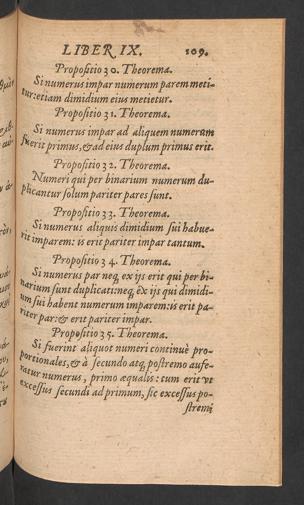 LIBER IX. 109.
Propoſitio 30. Theorema.
Si numerus impar numerum parem meti-
tur: etiam dimidium eius metietur.
Propoſitio 31. Theorema.
Si numerus impar ad aliquem numerum
fuerit primus, & ad eius duplum primus erit.
Propoſitio 32. Theorema.
Numeri qui per binarium numerum du-
plicantur ſolum pariter pares ſunt.
Propoſitio 33. Theorema.
Si numerus aliquis dimidium ſui habue-
rit imparem: is erit pariter impar tantum.
Propoſitio 34. Theorema.
Si numerus par neq, ex ijs erit qui per bi-
narium ſunt duplicati: neq, ex ijs qui dimidi-
um ſui habent numerum imparem: is erit pa-
riter par: & erit pariter impar.
Propoſitio 35. Theorema.
Si fuerint aliquot numeri continuè pro-
portionales, & à ſecundo atq, poſtremo aufe-
ratur numerus, primo æqualis: tum erit vt
exceſſus ſecundi ad primum, ſic exceſſus po-
ſtremi